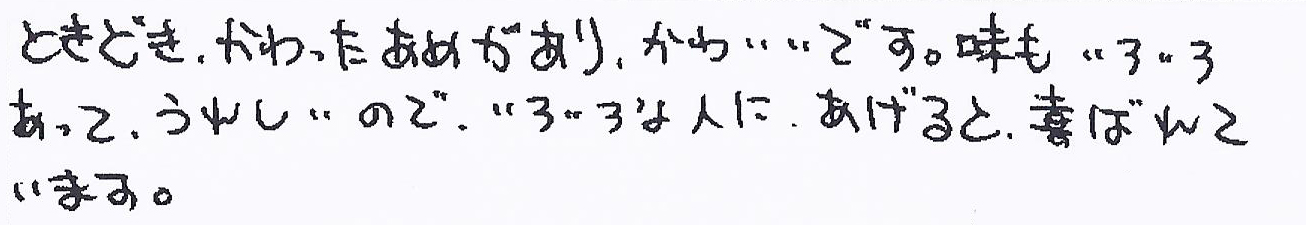 ときどき、かわったあめがあり、かわいいです。味もいろいろ
あって、うれしいので、いろいろな人に、あげると、喜ばれて
います。